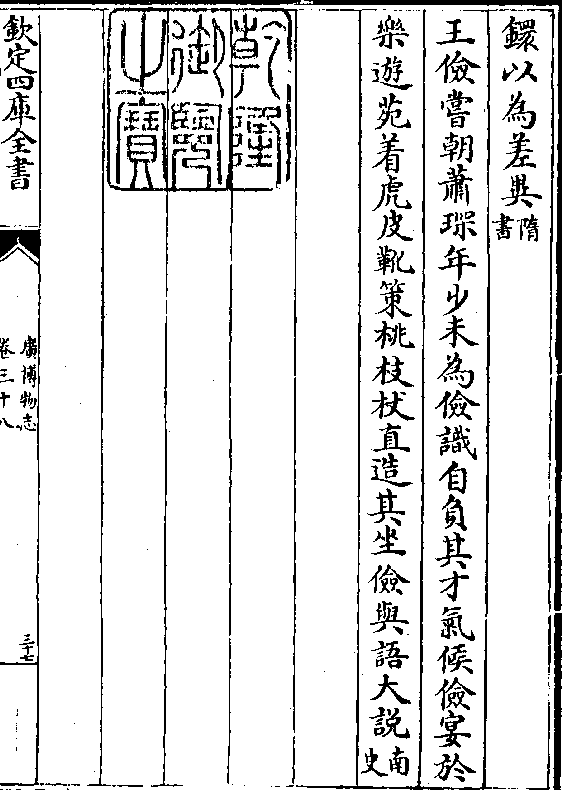 鐶以為差與隋書
王儉嘗朝蕭琛年少未為儉識自負其才氣候儉宴於
樂遊苑着虎皮靴策桃枝杖直造其坐儉與語大説南史
乾隆御覽之寶
欽定四庫全書
廣博物志
卷三十八
三十七